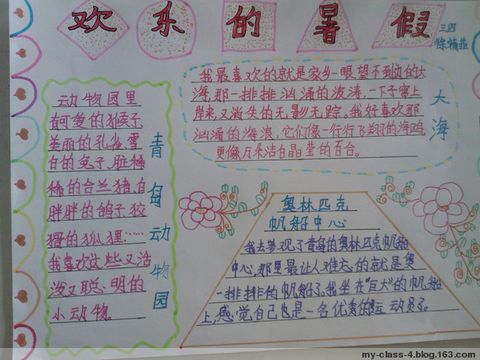 欢乐的暑假
三四
动物园里
有可爱的猴子
美丽的孔雀,雪
白的兔子,脏稀
稀的合兰猪,白
胖胖的鸽子,狡
猾的狐狸……
我喜欢这些又活
泼又聪明的
小动物。
青岛动物园
我最喜欢的就是家乡一眼望不到边的大
海,那一排排汹涌的波涛,一下子窜上
岸来,又消失的无影无踪。我好喜欢那
汹涌的海浪,它们像一行行飞翔的海鸥,
更像万朵洁白晶莹的百合。
大海
奥林匹克
帆船中心
我去参观了青岛的奥林匹克帆船
中心,那里最让人难忘的就是奥
一排排的帆船了。我坐在"巨大"的帆船
上,感觉自己也是一名优秀的运动员了。
my-class-4.blog.163.com